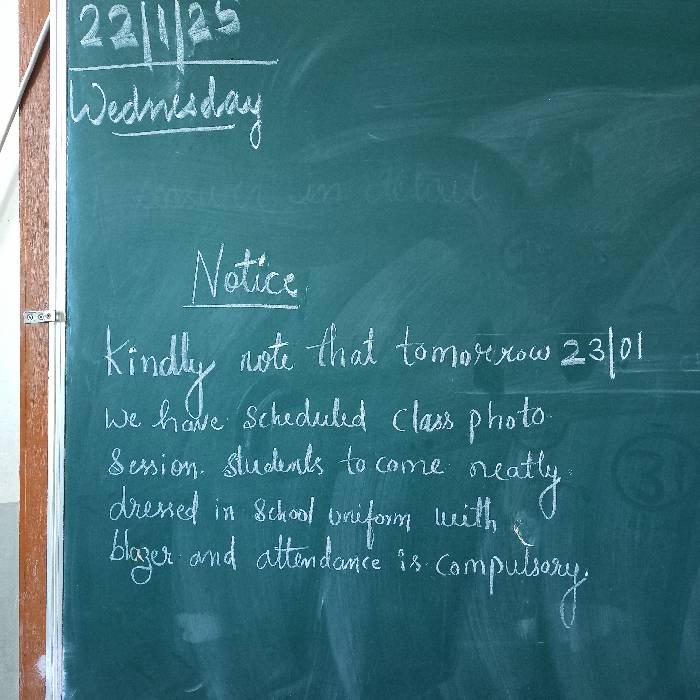 22/1/25
Wednesday
answer in detail
Notice
Kindly note that tomorrow 23/01
we have scheduled class photo
session. students to come neatly
dressed in school uniform with
blazer and attendance is compulsory.
3